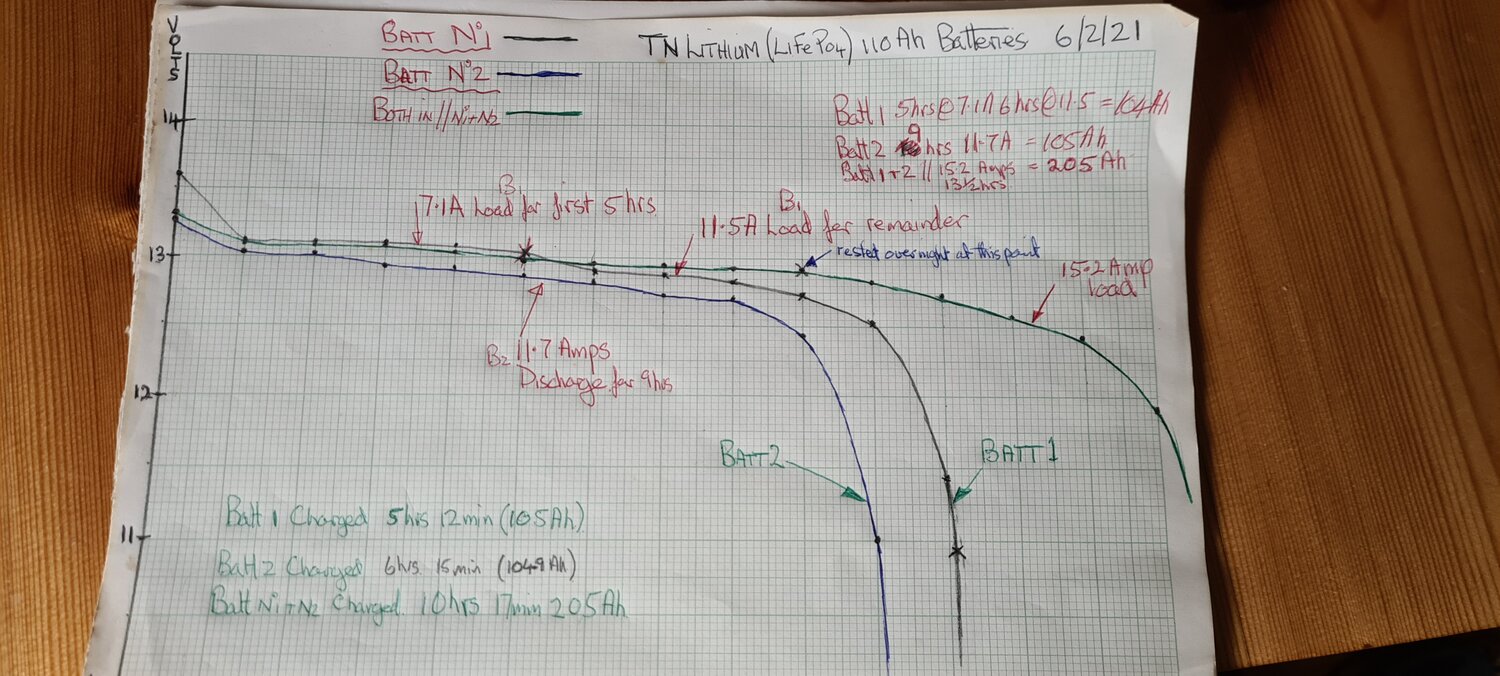 VOLTS
BATT No1
BATT No2
BOTH IN // N1+N2
TN LITHIUM (LiFePo4) 110Ah Batteries 6/2/21
Batt 1 5hrs@7.1A 6hrs@11.5 = 104Ah
Batt 2 9 hrs 11.7A = 105Ah
Batt 1+2 // 15.2 Amps = 205 Ah
13 1/2 hrs
14
B1
7.1A Load for first 5hrs
B1
11.5A Load for remainder
rested overnight at this point
13
15.2 Amp
Load
B2 11.7 Amps
Discharge for 9hrs
12
BATT 2
BATT 1
Batt 1 Charged 5hrs 12min (105Ah)
11
Batt 2 Charged 6hrs 15min (104.9Ah)
Batt N1+N2 Charged 10hrs 17min 205Ah